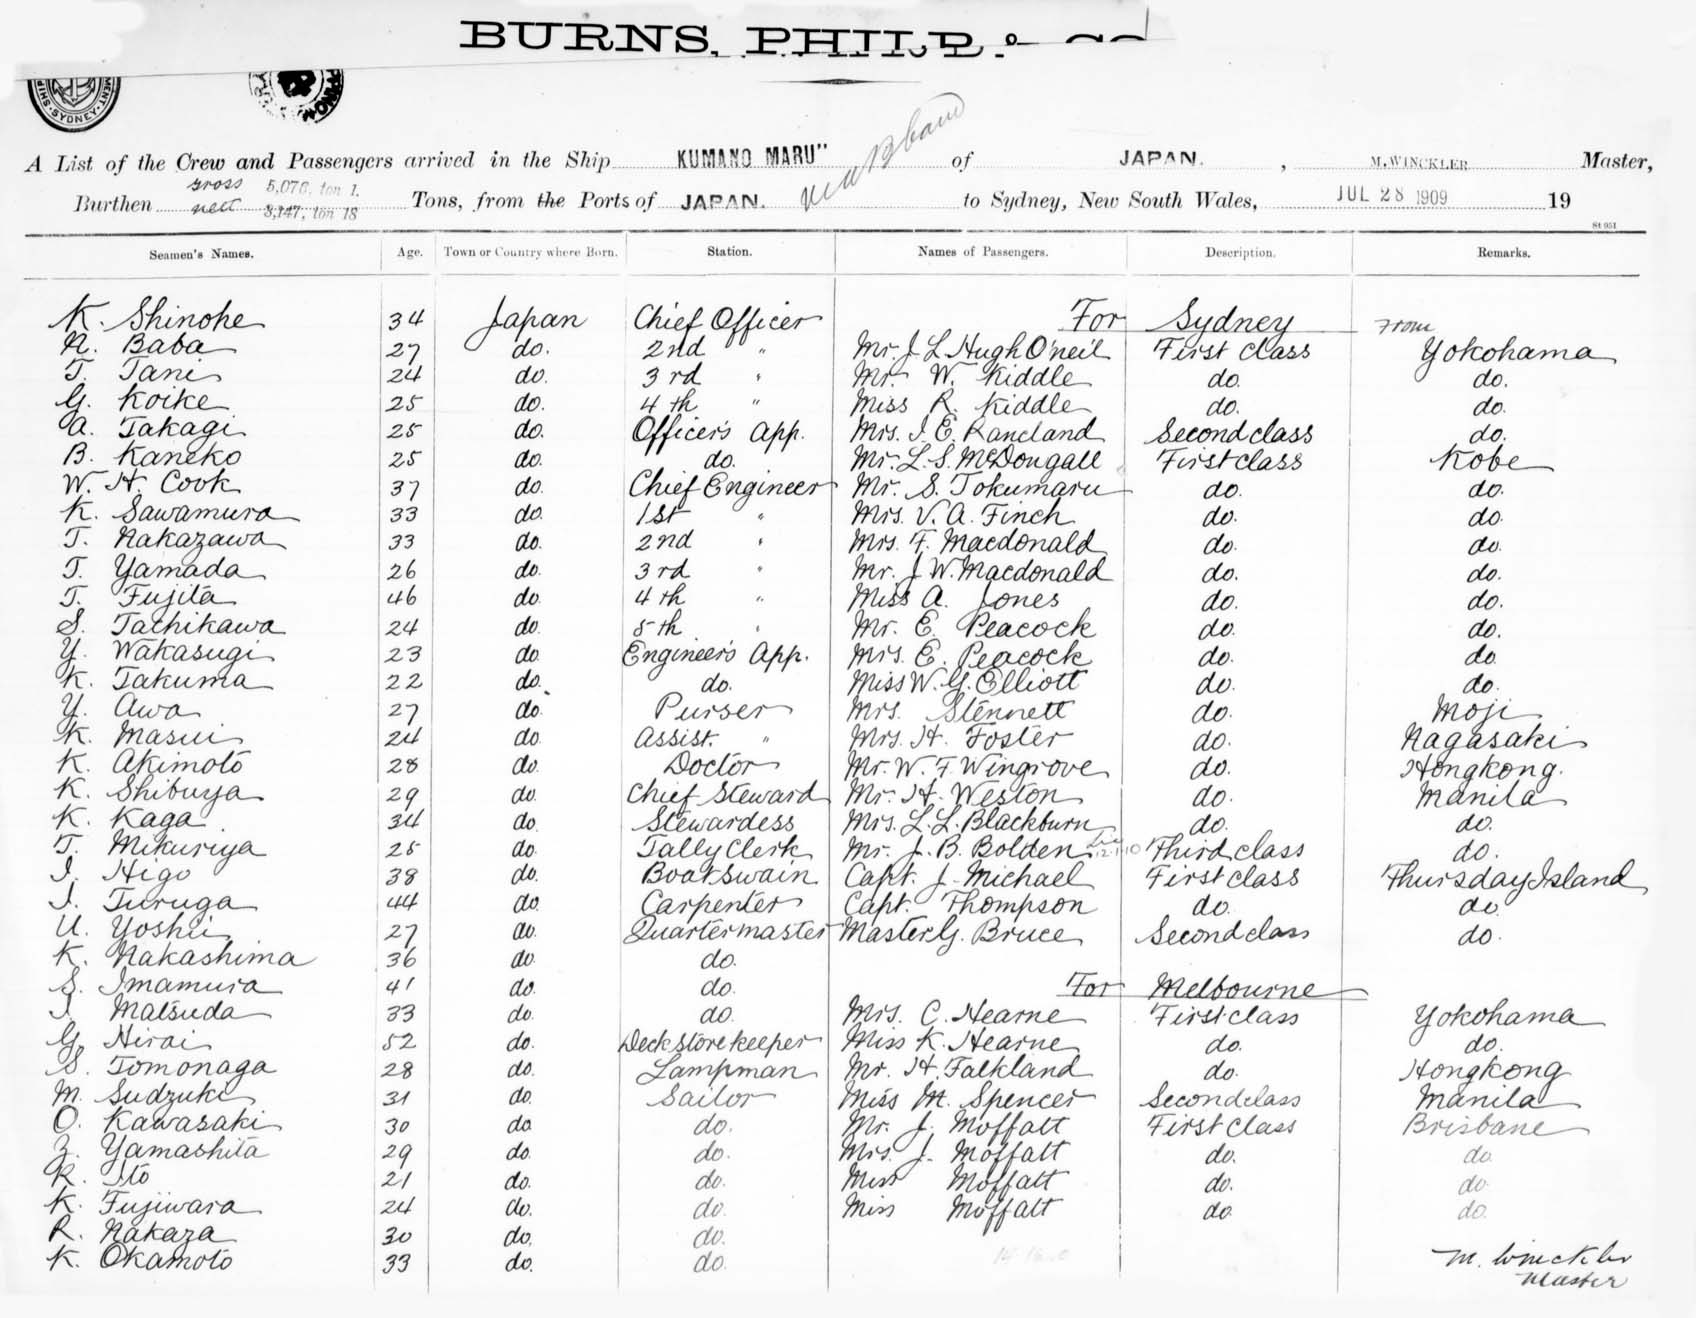 BURNS, PHILP & CO
SYDNEY
A List of the Crew and Passengers arrived in the Ship KUMANO MARU" of JAPAN. , M. WINCKLER Master,
Burthen gross 5,076, ton 1. nett 3,147, ton 18 Tons, from the Ports of JAPAN. to Sydney, New South Wales, JUL 28 1909 19
St 051
Seamen's Names. Age. Town or Country where Born. Station. Names of Passengers. Description. Remarks.
K. Shinohe 34 Japan Chief Officer For Sydney From
N. Baba 27 do. 2nd " Mr. J. L. Hugh O'neil First class Yokohama
T. Tani 24 do. 3rd " Mr. W. Kiddle do. do.
G. Koike 25 do. 4th " Miss R. Kiddle do. do.
A. Takagi 25 do. Officer's App. Mrs. I. E. Rancland Second class do.
B. Kaneko 25 do. do. Mr. L. S. McDougall First class Kobe
W. H. Cook 37 do. Chief Engineer Mr. S. Tokumaru do. do.
K. Sawamura 33 do. 1st " Mrs. V. A. Finch do. do.
T. Nakazawa 33 do. 2nd " Mrs. F. Macdonald do. do.
T. Yamada 26 do. 3rd " Mr. J. W. Macdonald do. do.
T. Fujita 46 do. 4th " Miss A. Jones do. do.
S. Tachikawa 24 do. 5th " Mr. E. Peacock do. do.
Y. Wakasugi 23 do. Engineer's App. Mrs. E. Peacock do. do.
K. Takuma 22 do. do. Miss W. G. Elliott do. do.
Y. Awa 27 do. Purser Mrs. Stennett do. Moji
K. Masui 24 do. Assist. " Mrs. H. Foster do. Nagasaki
K. Akimoto 28 do. Doctor Mr. W. F. Wingrove do. Hongkong.
K. Shibuya 29 do. Chief Steward Mr. H. Weston do. Manila
K. Kaga 34 do. Stewardess Mrs. L. L. Blackburn do. do.
T. Mikuriya 25 do. Tally Clerk Mr. J. B. Bolden Third class do.
I. Higo 38 do. Boatswain Capt. J. Michael First class Thursday Island
I. Turuga 44 do. Carpenter Capt. Thompson do. do.
U. Yoshii 27 do. Quartermaster Master G. Bruce Second class do.
K. Nakashima 36 do. do.
S. Imamura 41 do. do. For Melbourne
I. Matsuda 33 do. do. Mrs. C. Hearne First class Yokohama
G. Hirai 52 do. Deck Storekeeper Miss K. Hearne do. do.
S. Tomonaga 28 do. Lampman Mr. H. Falkland do. Hongkong
M. Sudzuki 31 do. Sailor Miss M. Spencer Second class Manila
O. Kawasaki 30 do do. Mr. J. Moffatt First class Brisbane
Z. Yamashita 29 do. do. Mrs. J. Moffatt do. do.
R. Ito 21 do. do. Miss Moffatt do. do.
K. Fujiwara 24 do. do. Miss Moffatt do. do.
R. Nakaza 30 do. do.
K. Okamoto 33 do. do.
M. Winckler
Master